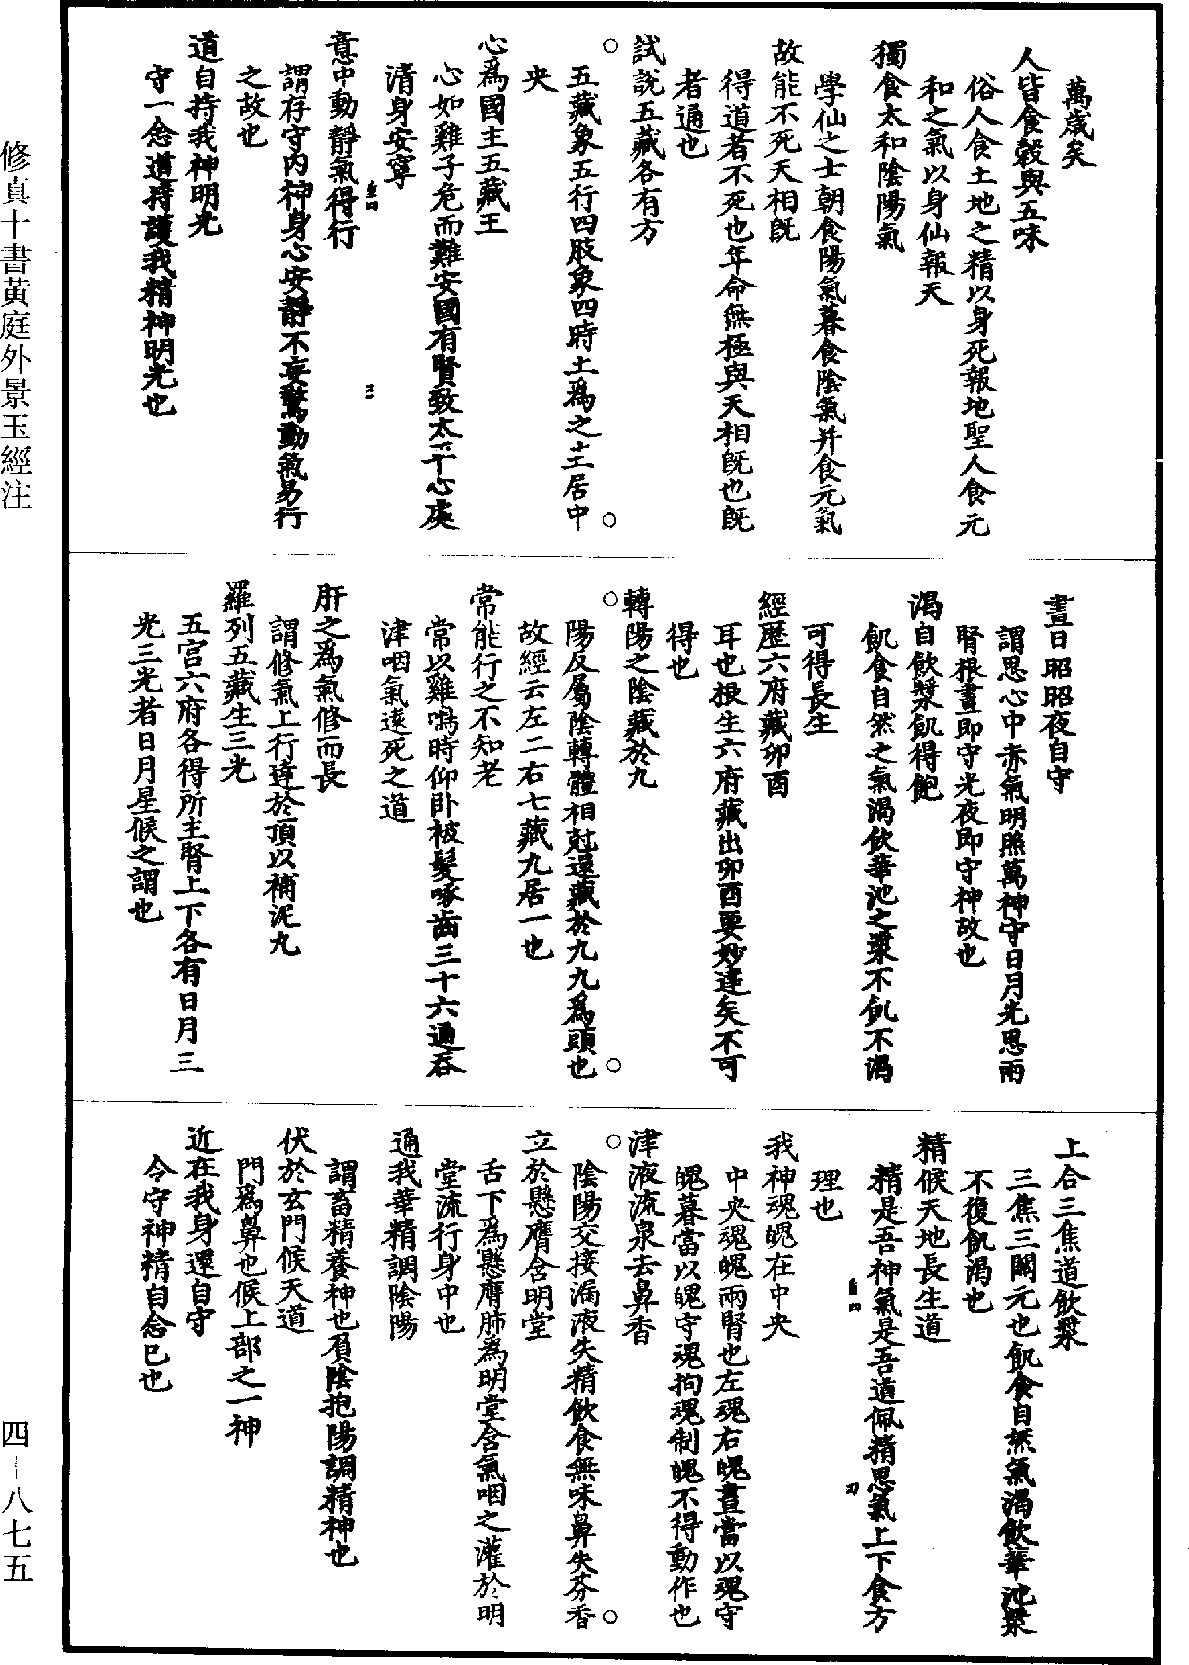 萬歲矣
人皆食穀與五味
俗人食土地之精以身死報地聖人食元
和之氣以身仙報天
獨食太和陰陽氣
學仙之士朝食陽氣暮食陰氣并食元氣
故能不死天相旣
得道者不死也年命無極與天相旣也旣
者通也
試說五藏各有方
五藏象五行四肢象四時土爲之主居中
央
心爲國主五藏王
心如雞子危而難安國有賢致太平心處
清身安寧
意中動靜氣得行
謂存守内神身心安靜不妄驚動氣易行
之故也
道自持我神明光
守一念道持護我精神明光也
晝日昭昭夜自守
謂思心中赤氣明照萬神守日月光思兩
腎根晝即守光夜即守神故也
渴自飲漿飢得飽
飢食自然之氣渴飲華池之漿不飢不渴
可得長生
經歷六府藏卯酉
耳也根生六府藏出卯酉要妙達矣不可
得也
轉陽之陰藏於九
陽反屬陰轉體相尅還藏於九九爲頭也
故經云左二右七藏九居一也
常能行之不知老
常以雞鳴時仰卧被髮啄齒三十六通吞
津咽氣遠死之道
肝之爲氣修而長
謂修氣上行達於頂以補泥丸
羅列五藏生三光
五宫六府各得所主腎上下各有日月三
光三光者日月星候之謂也
上合三焦道飲漿
三焦三關元也飢食自然氣渴飲華池漿
不復飢渴也
精候天地長生道
精是吾神氣是吾道佩精思氣上下食方
理也
我神魂魄在中央
中央魂魄兩腎也左魂右魄晝當以魂守
魄暮當以魄守魂拘魂制魄不得動作也
津液流泉去鼻香
陰陽交接漏液失精飲食無味鼻失芬香
立於懸膺含明堂
舌下爲懸膺肺爲明堂含氣咽之灌於明
堂流行身中也
通我華精調陰陽
謂畜精養神也負陰抱陽調精神也
伏於玄門候天道
門爲鼻也候上部之一神
近在我身還自守
令守神精自念已也
修真十書黄庭外景玉經注
四－八七五